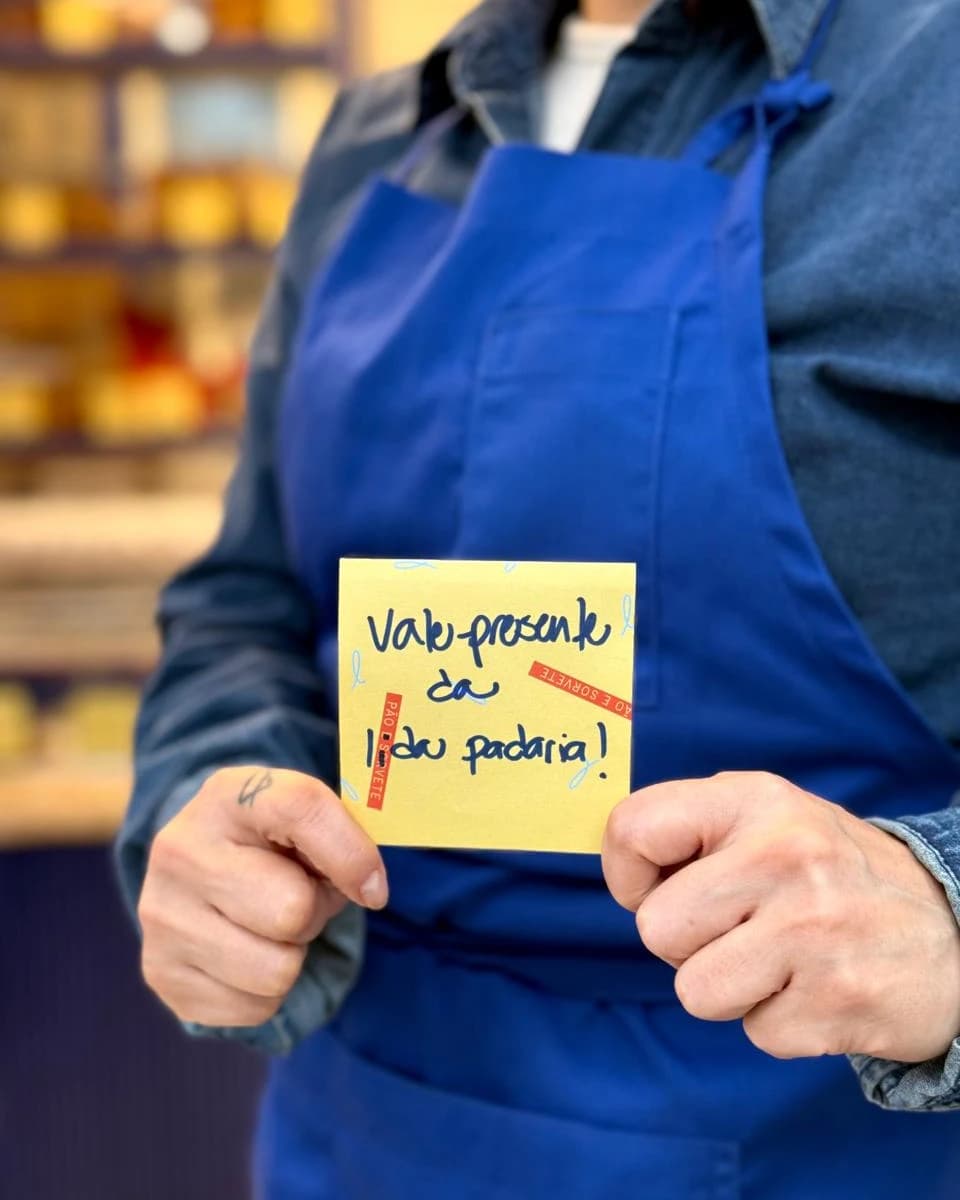 Vale-presente
da
PÃO E SORVETE
PÃO E SORVETE
da padaria!